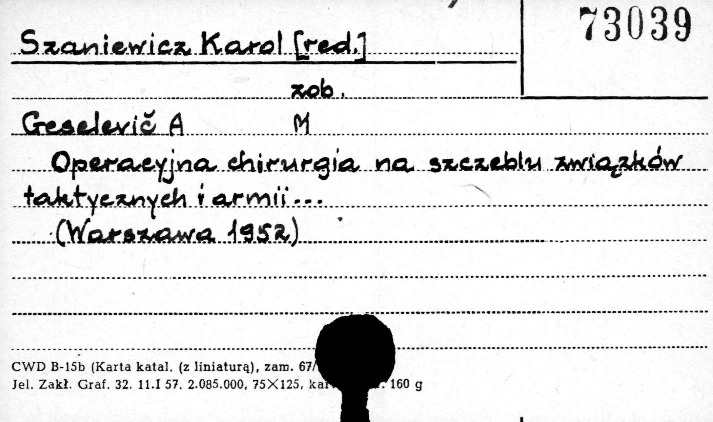 73039
Szaniewicz Karol [red.]
zob.
Geselevič A M
Operacyjna chirurgia na szczeblu związków
taktycznych i armii...
(Warszawa 1952)
CWD B-15b (Karta katal. (z liniaturą), zam. 67/
Jel. Zakł. Graf. 32. 11.I 57. 2.085.000, 75×125, 160 g